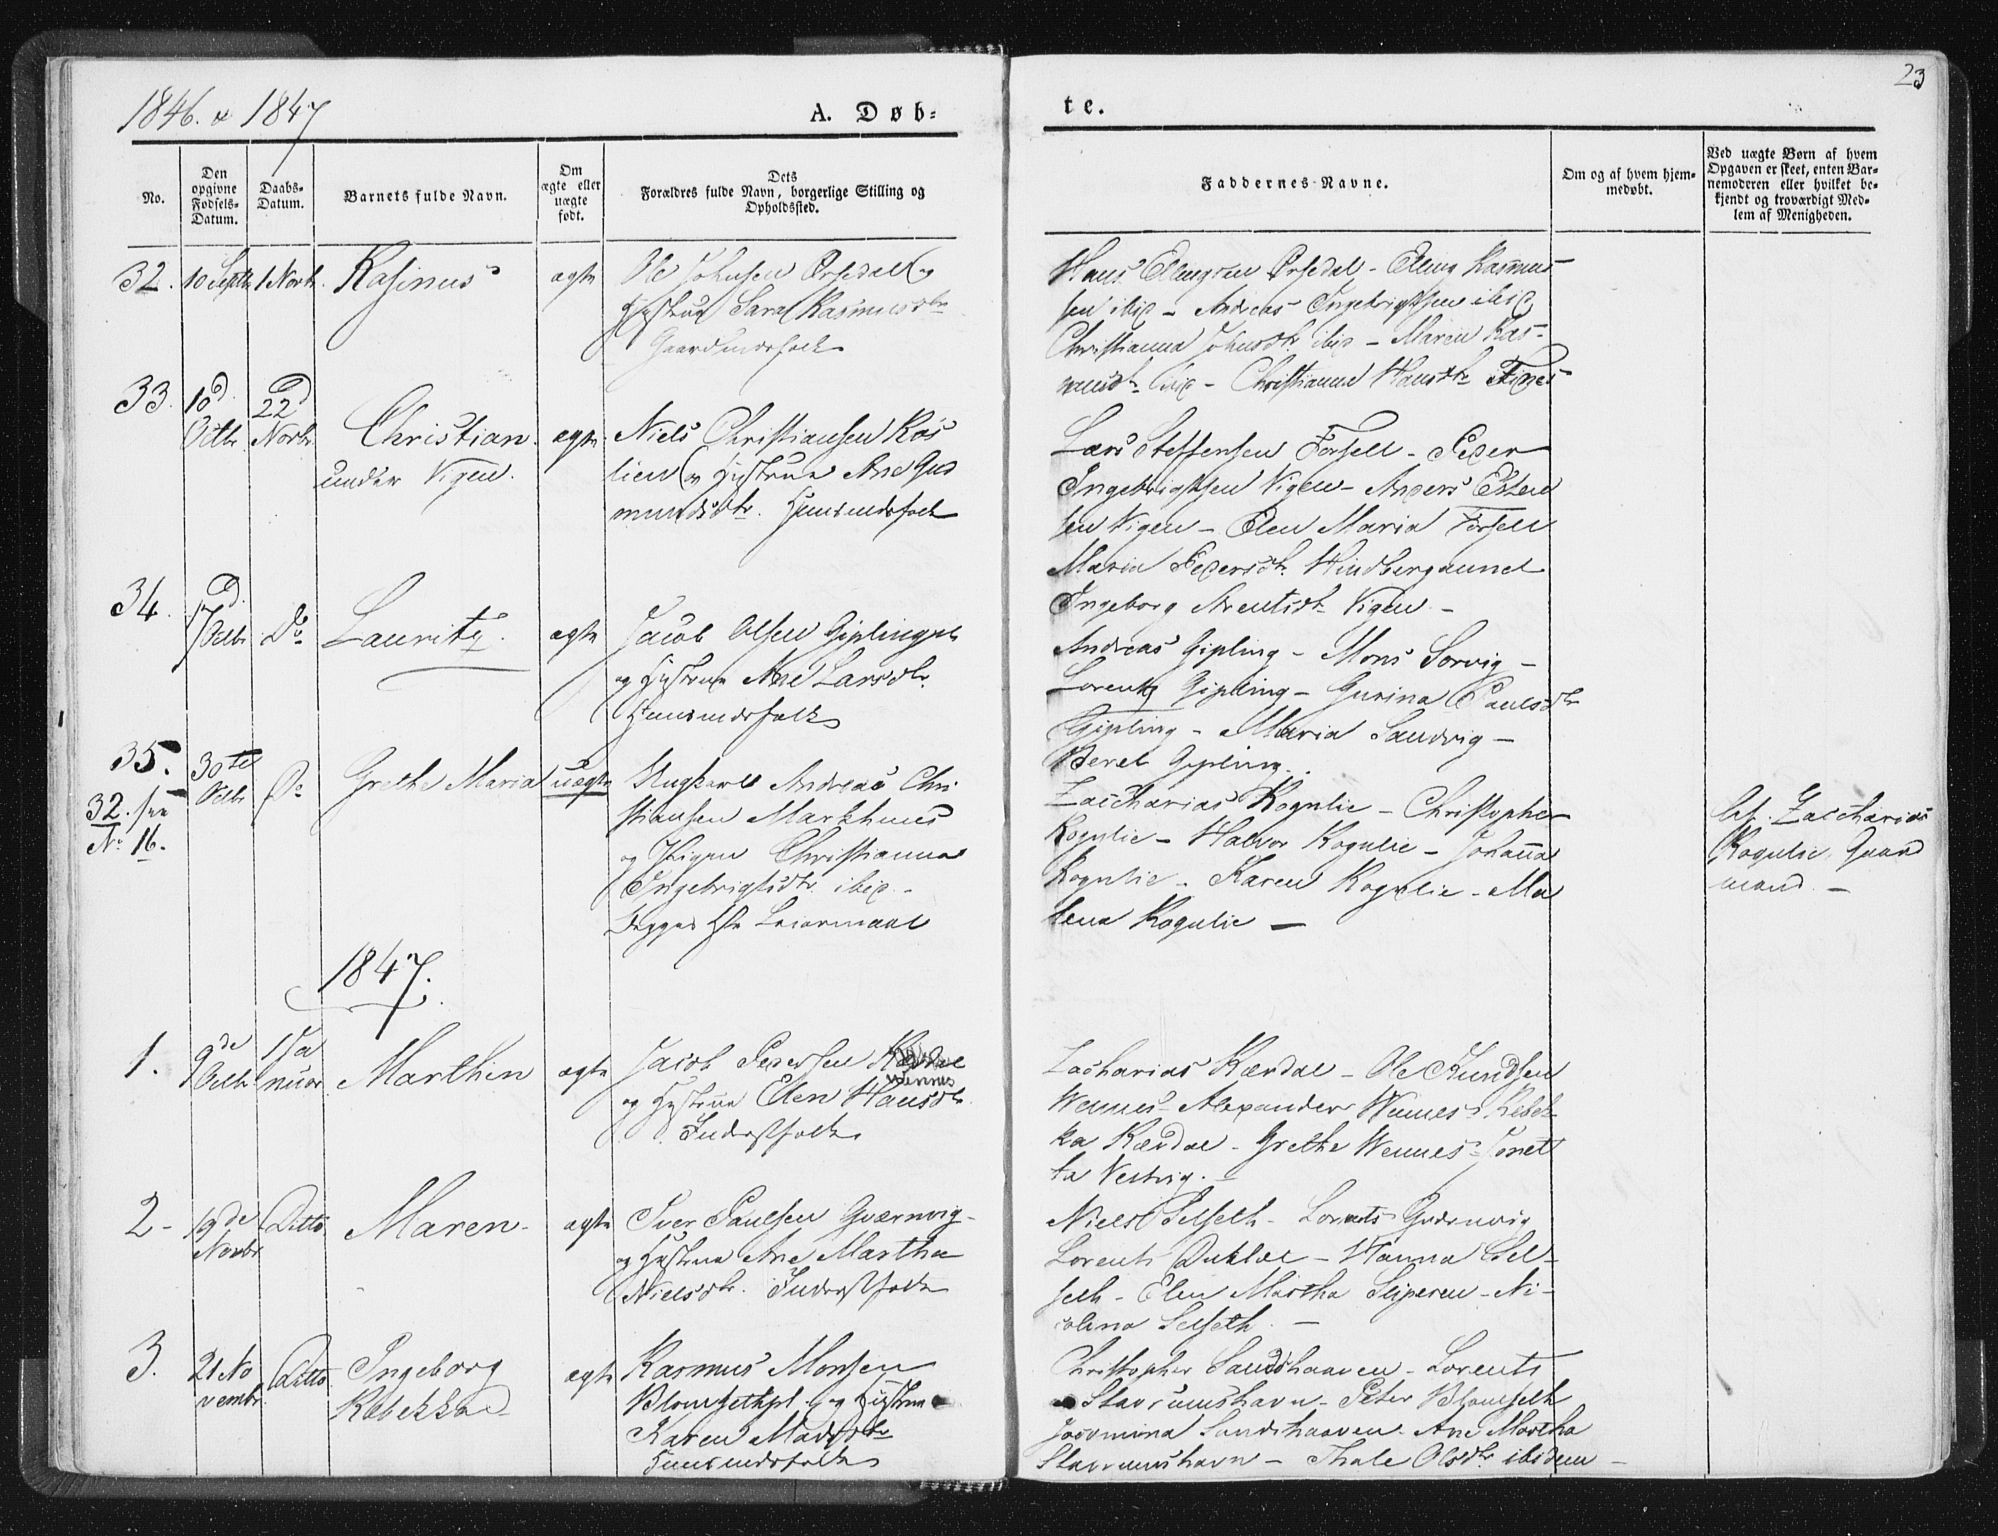 23
1846. & 1847
A. Døb-
te.
No.
Den opgivne Fødsels-Datum.
Daabs-Datum.
Barnets fulde Navn.
Om ægte eller uægte født.
Dets Forældres fulde Navn, borgerlige Stilling og Opholdssted.
Faddernes Navne.
Om og af hvem hjemmedøbt.
Ved uægte Børn af hvem Opgaven er skeet, enten Barnemoderen eller hvilket bekjendt og troværdigt Medlem af Menigheden.
32. 10 Septbr 1 Novbr Rasinus ægte
Ole Johnsen Ørsedal og
Hustrue Sara Rasmusdtr
Gaardmandsfolk
Hans Ellingsen Ørsedal - Elling Rasmus
sen ibid - Andreas Ingebrigtsen ibid
Christianna Johnsdtr ibid - Maren Ras-
musdtr ibid - Christianna Hansdtr
33. 18d Octbr 22d Novbr Christian ægte
under Vigen.
Niels Christiansen Ros
lien og Hustrue Ane Gud
mundsdtr. Huusmdsfolk
Lars Steffensen Forsell - Peder
Ingebrigtsen Vigen - Anders Esten
sen Vigen - Elen Maria Forsell
Maria Pedersdtr. Hindbergaunet
Ingeborg Arentsdtr Vigen -
34. 17d Octbr Do Lauritz. ægte
Jacob Olsen Giplingpl
og Hustrue Ane Larsdtr.
Huusmdsfolk
Andreas Gipling - Mons Sorvig -
Lorentz Gipling - Gurina Paulsdtr
Gipling - Maria Sandvig -
Beret Gipling.
35. 30te Octbr Do Grethe Maria uægte
32. see
No 16.
Ungkarl Andreas Chri
stiansen Markhuus
og Pigen Christianna
Ingebrigtsdtr ibid -
Begges 1ste Leiermaal
Zaccharias Rognlie - Christopher
Rognlie - Halvor Rognlie - Johanna
Rognlie - Karen Rognlie - Ma
lena Rognlie -
Zaccharias
Rognlie, Gaard
mand. -
1847.
1. 9de Octbr. 1 Ja nuar Marthin ægte
Jacob Pedersen
Wennes
og Hustrue Elen Hansdtr.
Inderstfolk
Zacharias Kærdal - Ole Knudsen
Wennes - Alexander Wennes - Rebek
ka Kærdal - Grethe Wennes - Jonet
ta Vestvig. -
2 - 19de Novbr Ditto Maren - ægte
Iver Paulsen Qværnvig -
og Hustrue Ane Martha
Nielsdtr. Inderstfolk
Niels Selseth - Lorents Qværnvig
Lorents Duklæt - Hanna Sel-
seth - Elen Martha Sliperen - Ni-
colina Selseth. -
3. 21 No vembr. Ditto Ingeborg ægte
Rebekka -
Rasmus Monsen
Blomsethpl. og Hustrue
Karen Madsdtr
Huusmdsfolk
Christopher Sandshaaven - Lorents
Stavrunshavn - Peter Blomseth
Jacomina Sandshaaven - Ane Martha
Stavrunshavn - Thale Olsdtr ibidem -